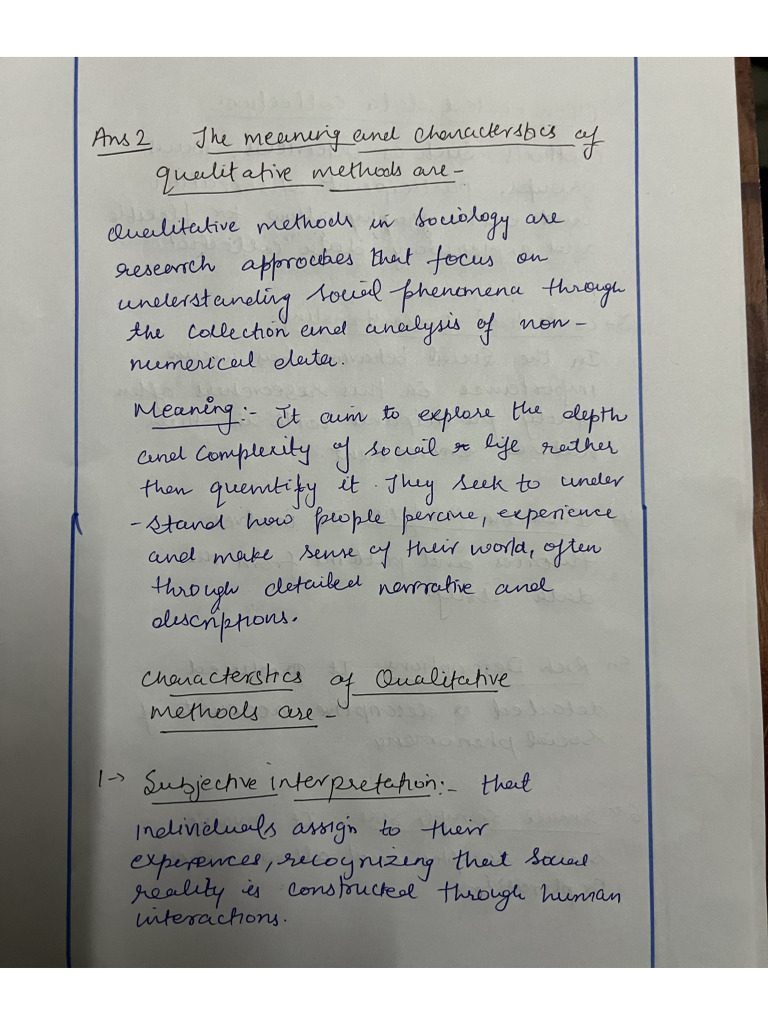 Ans 2 The meaning and characterstics of
qualitative methods are -
Qualitative methods in sociology are
research approches that focus on
understanding social phenomena through
the collection and analysis of non-
numerical data.
Meaning:- It aim to explore the depth
and complexity of social life rather
then quentify it. They seek to under
-stand how people percive, experience
and make sense of their world, often
through detailed narrative and
descriptions.
Characterstics of Qualitative
methods are -
1-> Subjective interpretation:- that
individuals assign to their
experences, recognizing that social
reality is constructed through human
interactions.